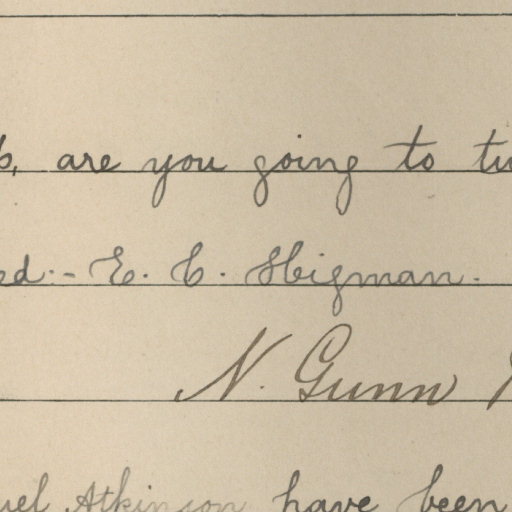 are you going to
E. C. Higman.
N. Gunn
Atkinson have been